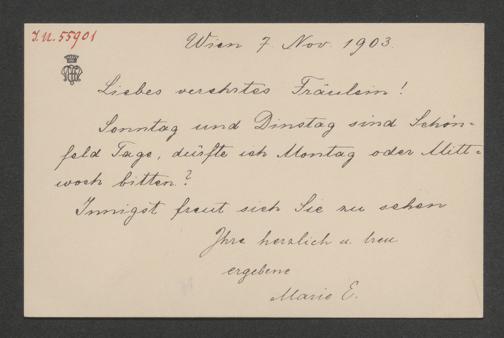 I.N. 55901
Wien 7. Nov. 1903.
Liebes verehrtes Fräulein!
Sonntag und Dinstag sind Schön-
feld Tage, dürfte ich Montag oder Mitt-
woch bitten?
Innigst freut sich Sie zu sehen
Ihre herzlich u. treu
ergebene
Marie E.